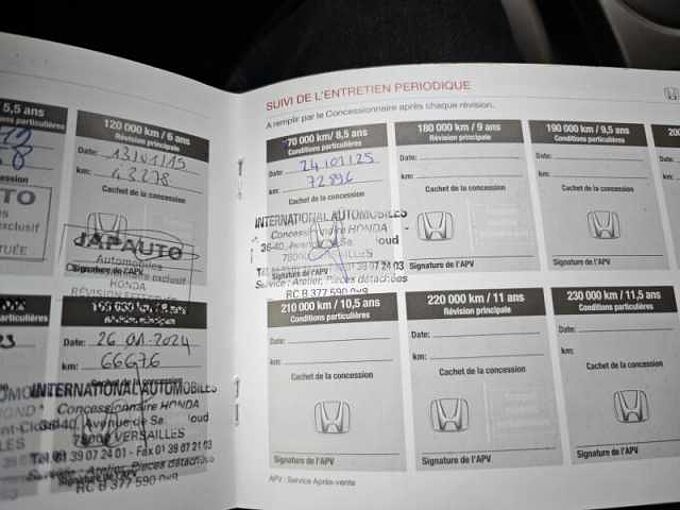 5,5 ans
particulières
concession
TO
exclusif
TUÉE
120 000 km / 6 ans
Révision principale
Date: 13/01/15
km: 43278
Cachet de la concession
JAPAUTO
Automobiles
exclusif
HONDA
Signature de l'APV
particulières
Date: 26 01 2024
km: 66676
Cachet de la concession
INTERNATIONAL AUTOMOBILES
Concessionnaire HONDA
36-40, Avenue de Sa oud
78000 VERSAILLES
Tél. 01 39 07 24 01 - Fax 01 39 07 21 03
Service : Atelier, Pièces détachées
RC B 377 590 0
SUIVI DE L'ENTRETIEN PERIODIQUE
A remplir par le Concessionnaire après chaque révision.
70 000 km/ 8,5 ans
Conditions particulières
Date: 24/01/25
km: 72896
Cachet de la concession
INTERNATIONAL AUTOMOBILES
Concessionnaire HONDA
36-40, Avenue de Sa oud
Signature de l'APV
Service : Atelier, Pièces détachées
RC B 377 590
180 000 km / 9 ans
Révision principale
Date:
km:
Cachet de la concession
Signature de l'APV
190 000 km / 9,5 ans
Conditions particulières
Date:
km:
Cachet de la concession
Signature de l'APV
200
210 000 km / 10,5 ans
Conditions particulières
Date:
km:
Cachet de la concession
Signature de l'APV
220 000 km / 11 ans
Révision principale
Date:
km:
Cachet de la concession
Signature de l'APV
230 000 km / 11,5 ans
Conditions particulières
Date:
km:
Cachet de la concession
Signature de l'APV
APV : Service Après-vente